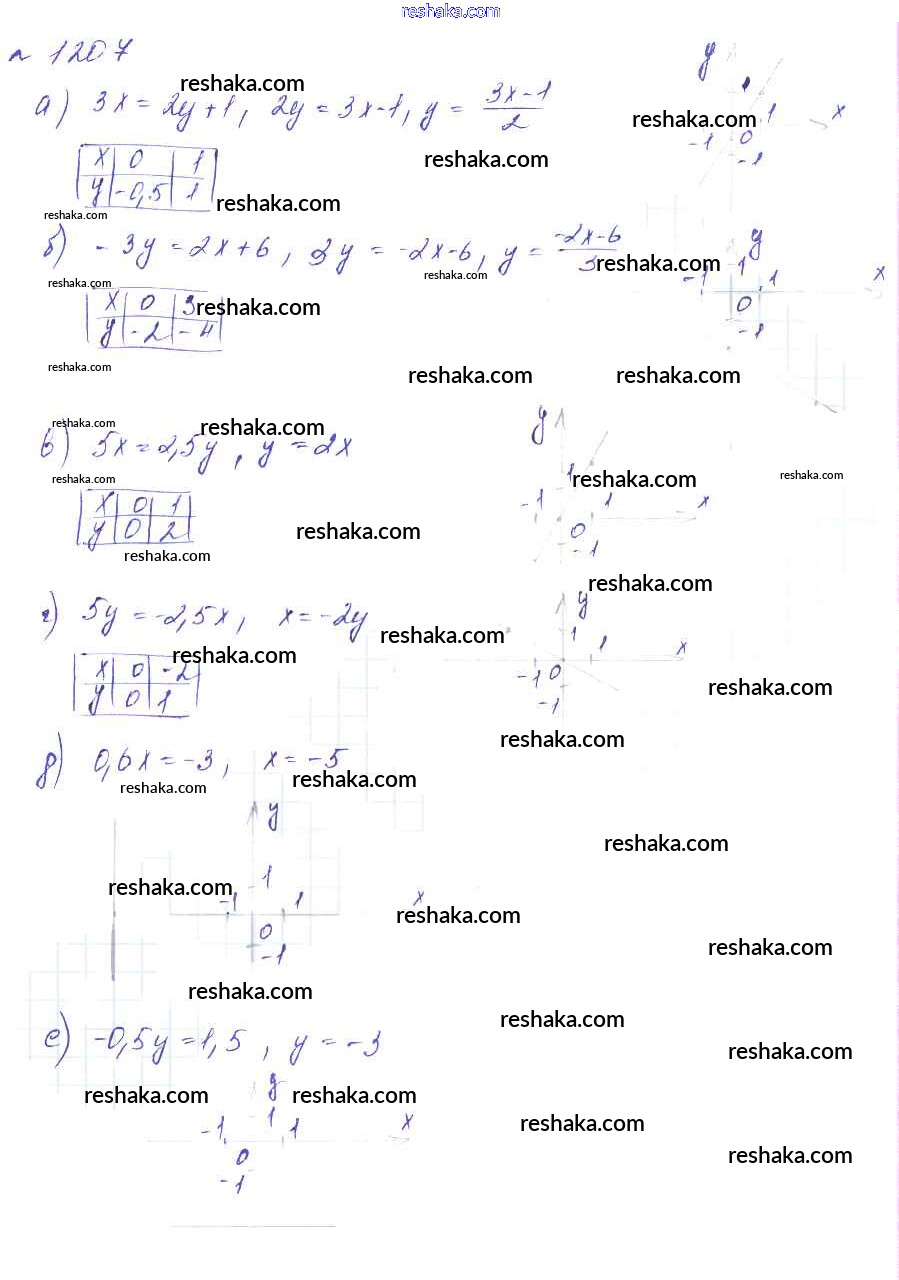 reshaka.com
№ 1207
reshaka.com
а) 3x = 2y+1, 2y = 3x-1, y = (3x-1)/2
reshaka.com
y x 1 -1 0 -1
reshaka.com
x 0 1
y -0,5 1
reshaka.com
reshaka.com
б) -3y = 2x+6, 3y = -2x-6, y = (-2x-6)/3
reshaka.com
reshaka.com
reshaka.com
y x 1 -1 1 0 -1
x 0 3
y -2 -4
reshaka.com
reshaka.com
reshaka.com
reshaka.com
reshaka.com
reshaka.com
в) 5x = 2,5y, y = 2x
reshaka.com
reshaka.com
reshaka.com
y 1 -1 1 x 0 -1
x 0 1
y 0 2
reshaka.com
reshaka.com
reshaka.com
г) 5y = -2,5x, x = -2y
reshaka.com
y 1 1 x -1 0 -1
reshaka.com
x 0 -2
y 0 1
reshaka.com
reshaka.com
д) 0,6x = -3, x = -5
reshaka.com
reshaka.com
y
reshaka.com
1
reshaka.com
-1 1 x
reshaka.com
0
-1
reshaka.com
reshaka.com
reshaka.com
е) -0,5y = 1,5, y = -3
reshaka.com
y
reshaka.com
reshaka.com
1
-1 1 x
reshaka.com
0
reshaka.com
-1